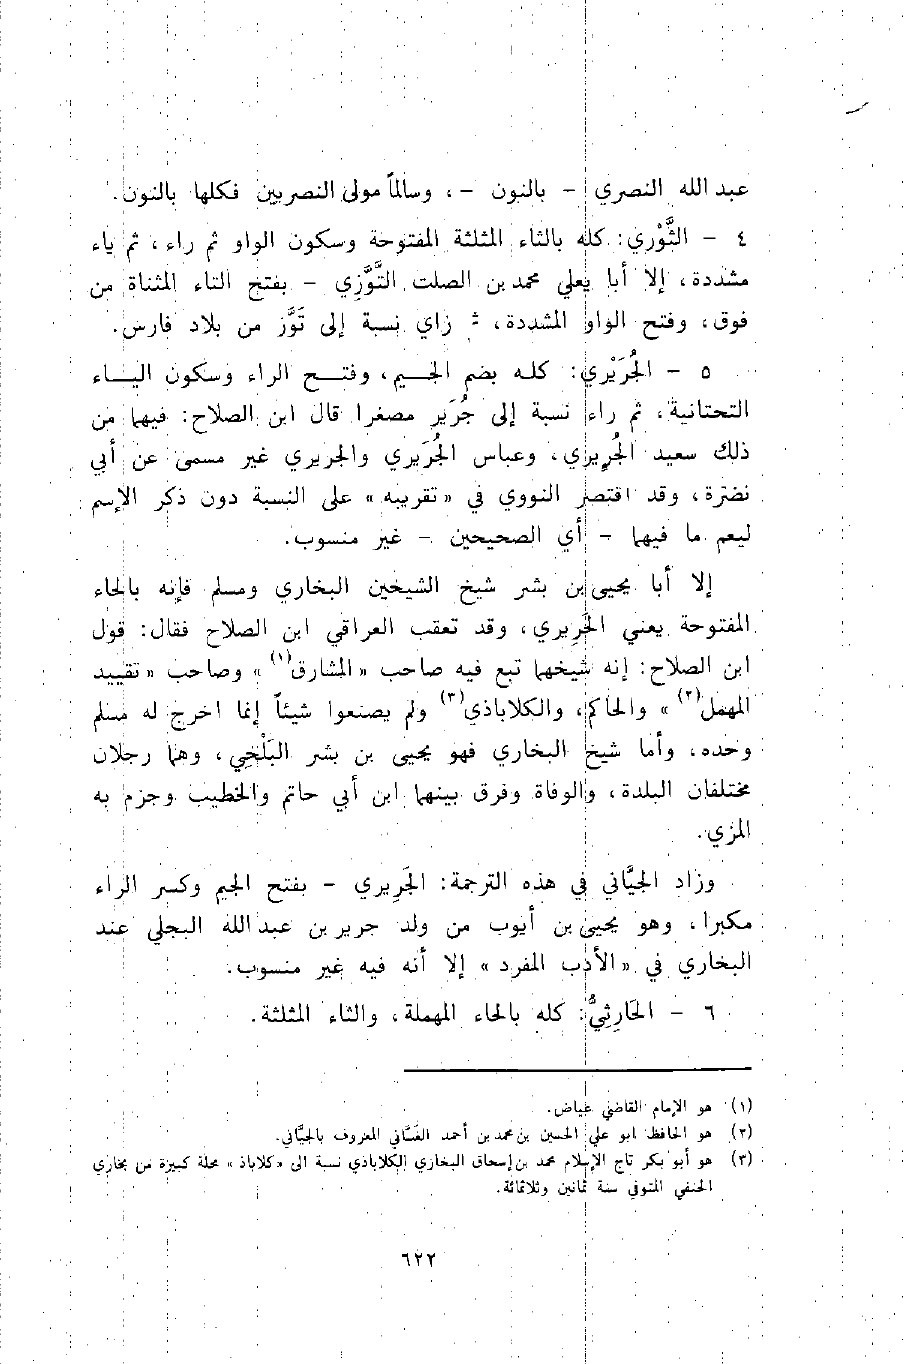 عبد الله النصري - بالنون -، وسالماً مولى النصريين فكلها بالنون.
٤ - الثَّوْري: كله بالثاء المثلثة المفتوحة وسكون الواو ثم راء، ثم ياء
مشددة، إلا أبا يعلي محمد بن الصلت التَّوَّزِي - بفتح التاء المثناة من
فوق، وفتح الواو المشددة، ثم زاي نسبة إلى تَوَّز من بلاد فارس.
٥ - الجُرَيْري: كله بضم الجيم، وفتح الراء وسكون الياء
التحتانية، ثم راء نسبة إلى جُرَير مصغرا قال ابن الصلاح: فيهما من
ذلك سعيد الجُريري، وعباس الجُرَيري والجريري غير مسمى عن أبي
نضرة، وقد اقتصر النووي في «تقريبه» على النسبة دون ذكر الإسم
ليعم ما فيهما - أي الصحيحين - غير منسوب.
إلا أبا يحيى بن بشر شيخ الشيخين البخاري ومسلم فإنه بالحاء
المفتوحة يعني الحَرِيري، وقد تعقب العراقي ابن الصلاح فقال: قول
ابن الصلاح: إنه شيخهما تبع فيه صاحب «المشارق(١)» وصاحب «تقييد
المهمل(٢)» والحاكم، والكلاباذي(٣) ولم يصنعوا شيئاً إنما اخرج له مسلم
وحده، وأما شيخ البخاري فهو يحيى بن بشر البَلْخِي، وهما رجلان
مختلفان البلدة، والوفاة وفرق بينهما ابن أبي حاتم والخطيب وجزم به
المزي.
وزاد الجيَّاني في هذه الترجمة: الجَرِيري - بفتح الجيم وكسر الراء
مكبرا، وهو يحيى بن أيوب من ولد جرير بن عبد الله البجلي عند
البخاري في «الأدب المفرد» إلا أنه فيه غير منسوب.
٦ - الحَارِثِيُّ: كله بالحاء المهملة، والثاء المثلثة.
(١) هو الإمام القاضي عياض.
(٢) هو الحافظ ابو علي الحسين بن محمد بن أحمد الغسَّاني المعروف بالجيَّاني.
(٣) هو أبو بكر تاج الإسلام محمد بن إسحاق البخاري الكلاباذي نسبة الى «كلاباذ» محلة كبيرة من بخاري
الحنفي المتوفي سنة ثمانين وثلاثمائة.
٦٢٢